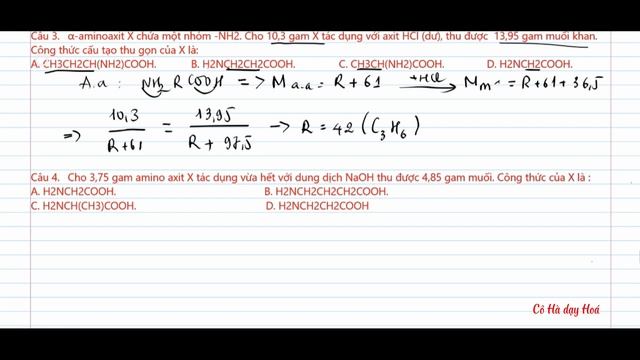 Câu 3. α-aminoaxit X chứa một nhóm -NH2. Cho 10,3 gam X tác dụng với axit HCl (dư), thu được 13,95 gam muối khan.
Công thức cấu tạo thu gọn của X là:
A. CH3CH2CH(NH2)COOH. B. H2NCH2CH2COOH. C. CH3CH(NH2)COOH. D. H2NCH2COOH.
A.a : NH2 R COOH => M a.a = R + 61 +HCl → M m' = R + 61 + 36,5
=> 10,3 / R+61 = 13,95 / R + 97,5 → R = 42 ( C3H6 )
Câu 4. Cho 3,75 gam amino axit X tác dụng vừa hết với dung dịch NaOH thu được 4,85 gam muối. Công thức của X là :
A. H2NCH2COOH. B. H2NCH2CH2CH2COOH.
C. H2NCH(CH3)COOH. D. H2NCH2CH2COOH
Cô Hà dạy Hoá